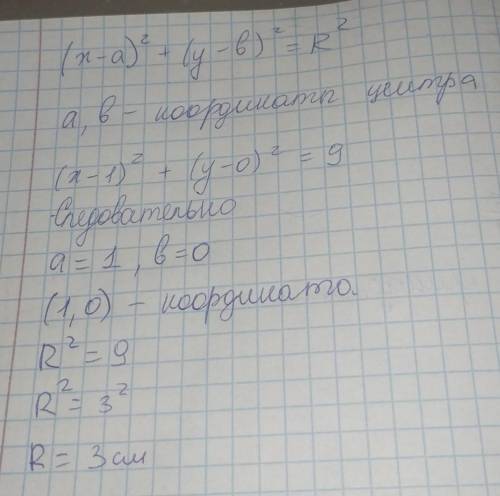 (x-a)² + (y-в)² = R²
a, в - координаты центра
(x-1)² + (y-0)² = 9
Следовательно
a = 1, в = 0
(1,0) - координата
R² = 9
R² = 3²
R = 3 см